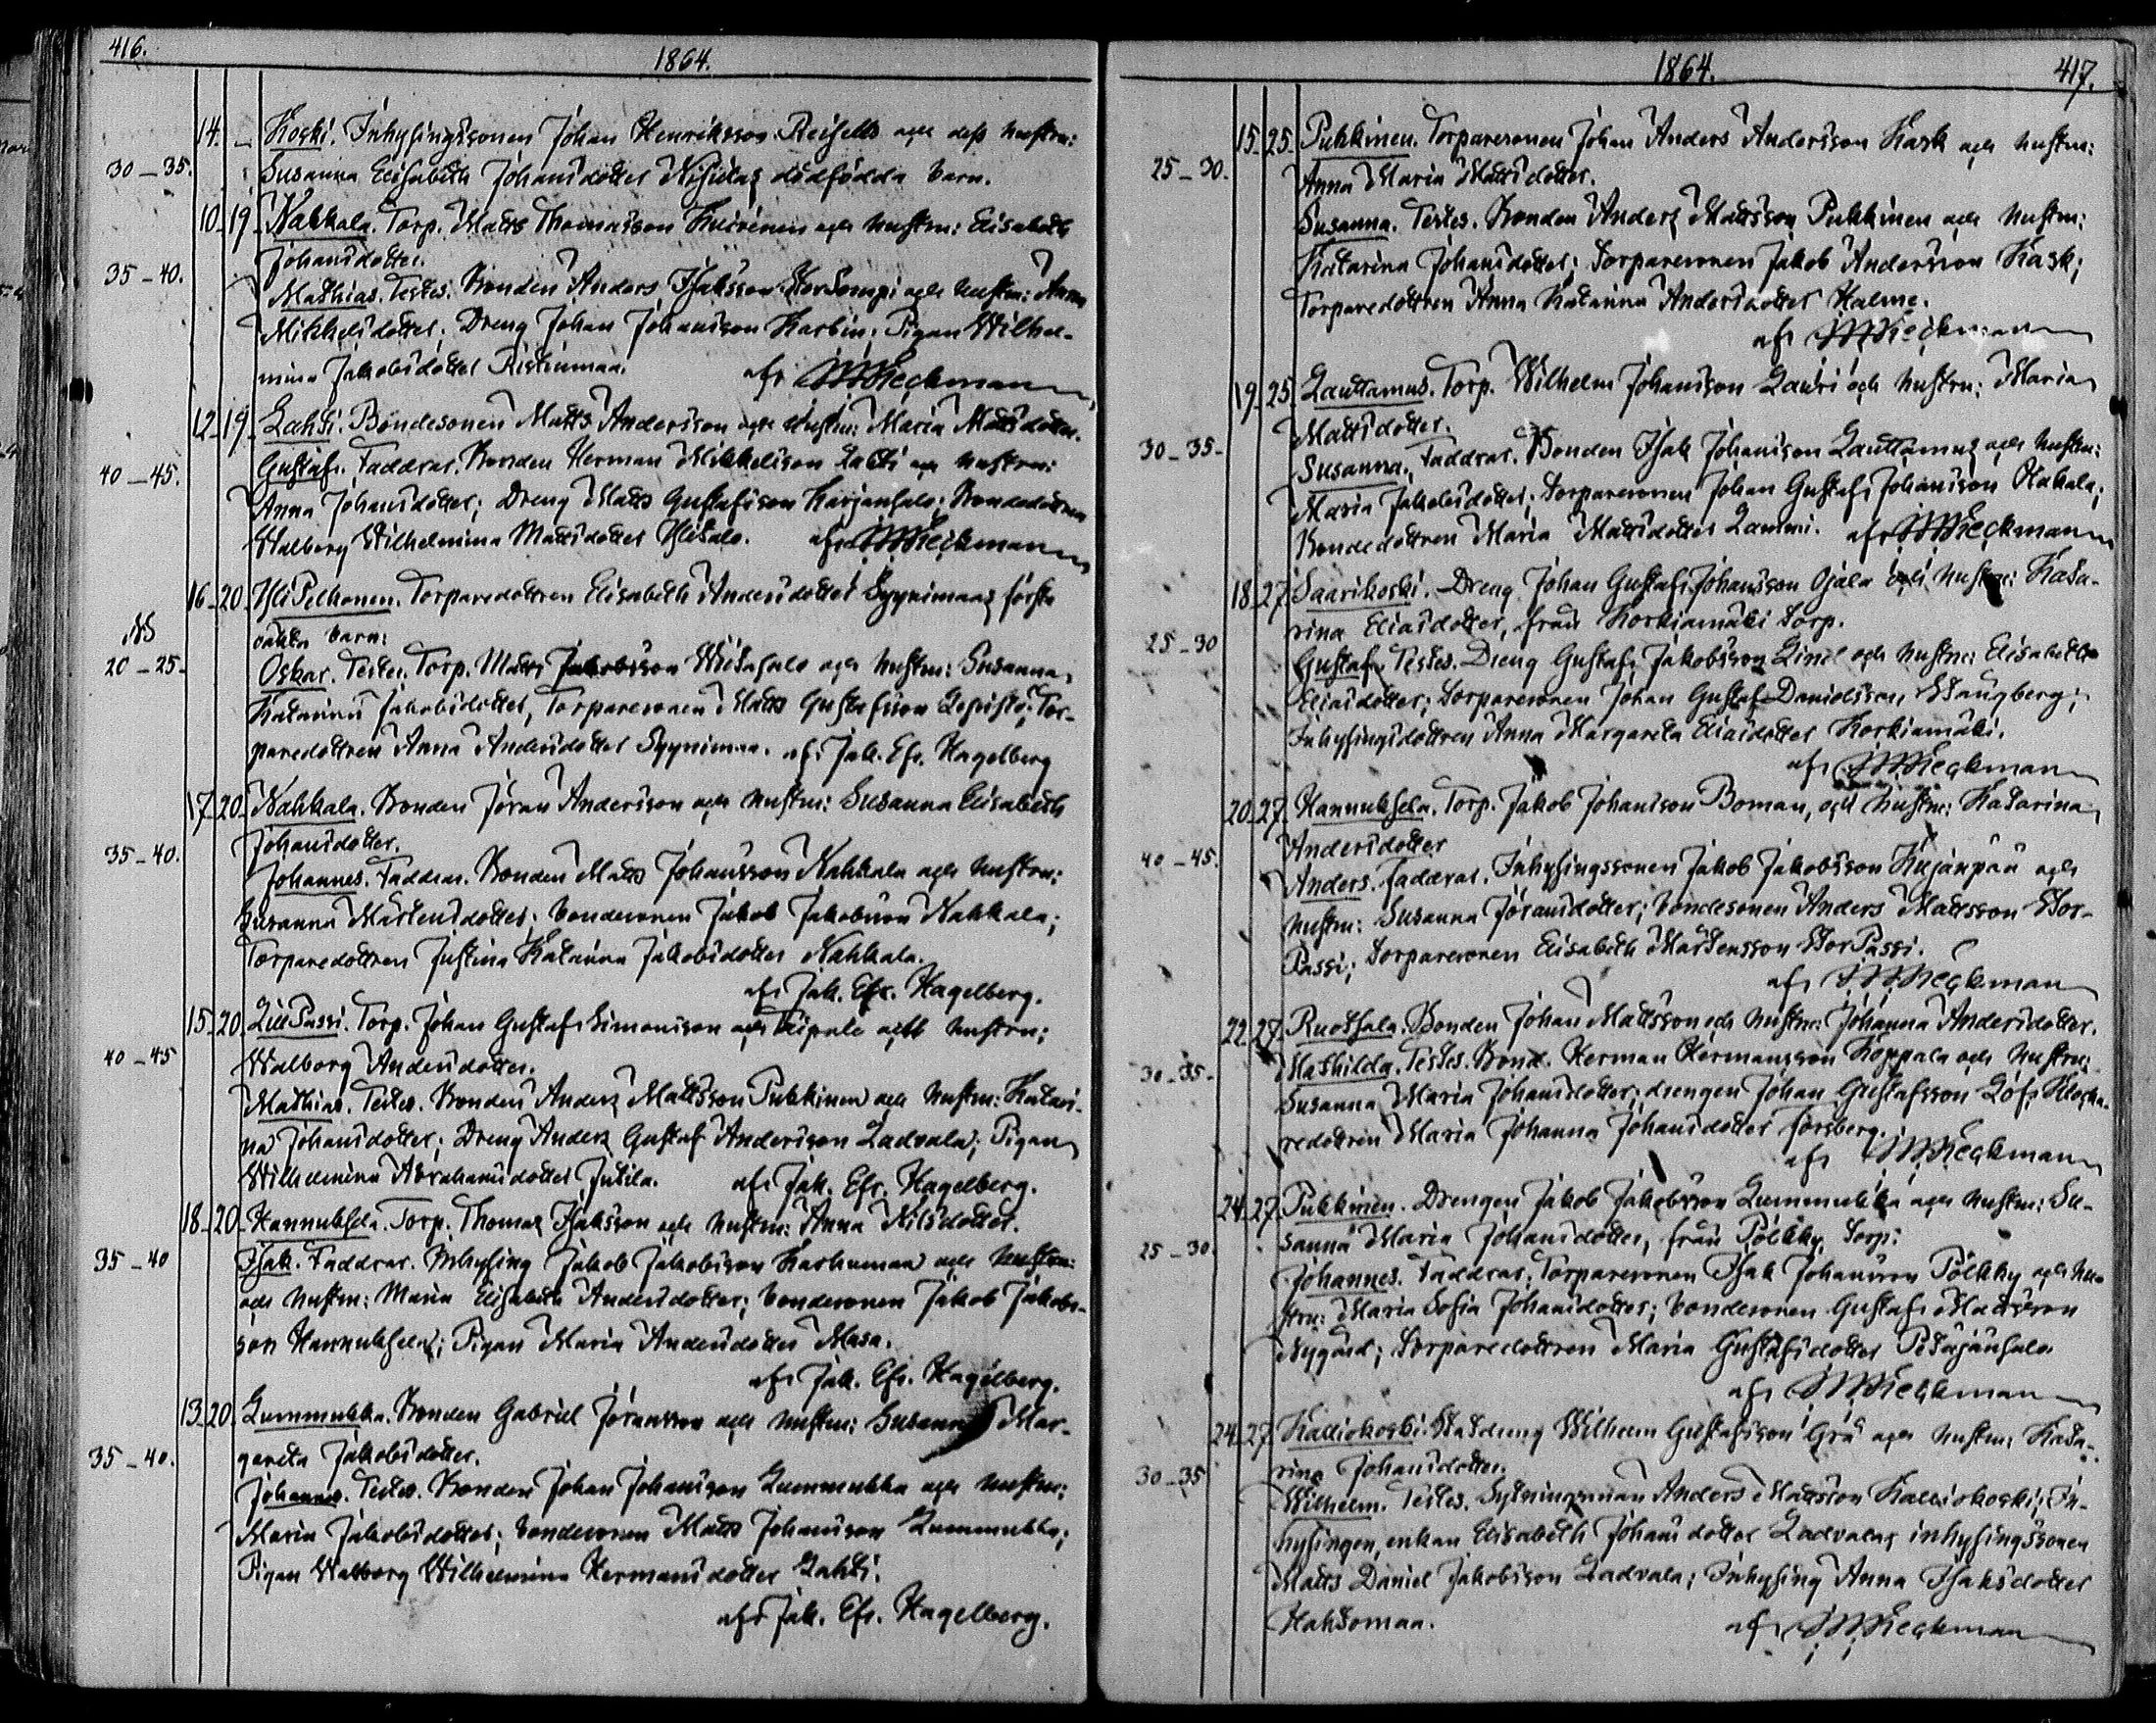 416.
1864.
14. Koski. Inhysingssonen Johan Henriksson och dess hustru:
30–35. Susanna Elisabeth Johansdotter dödfödda barn.
10. 19. Nahkala. Torp. Matts Thomasson och hustru: Elisabeth
Johansdotter.
35–40. Mathias. Testes. Bonden Anders Isaksson och hustru: Anna
Mikkelsdotter; Dreng Johan Johansson Karbin; Pigan Wilhel-
mina Jakobsdotter Ristinmaa. af
12. 19. Lahti. Bondesonen Matts Andersson och hustru: Maria Mattsdotter.
40–45. Gustaf. Faddrar. Bonden Herman Mikkelsson Lahti och hustru:
Anna Johansdotter; Dreng Matts Gustafsson Karjansalo; Bondedottren
Walborg Wilhelmina Mattsdotter Ylitalo. af
16. 20. YliPelkonen. Torparedottren Elisabeth Andersdotter Syynimaas första
oäkta barn:
20–25. Oskar. Testes. Torp. Matts Jakobsson Wiitasalo och hustru: Susanna
Katarina Jakobsdotter, Torparesonen Matts Gustafsson Tor-
paredottren Anna Andersdotter Syynimaa. af Jak. Efr. Hagelberg
17. 20. Nahkala. Bonden Jöran Andersson och hustru: Susanna Elisabeth
Johansdotter.
35–40. Johannes. Faddrar. Bonden Matts Johansson Nahkala och hustru:
Susanna Mårtensdotter; bondesonen Jakob Jakobsson Nahkala;
Torparedottren Justina Katarina Jakobsdotter Nahkala.
af Jak. Efr. Hagelberg.
15. 20. LillPassi. Torp. Johan Gustaf Simonsson och hustru:
40–45 Walborg Andersdotter.
Mathias. Testes. Bonden Anders Mattsson Pukkinen och hustru: Katari-
na Johansdotter; Dreng Anders Gustaf Andersson Ladvala; Pigan
Wilhelmina Abrahamsdotter Jutila. af Jak. Efr. Hagelberg.
18. 20. Hannuksela. Torp. Thomas Isaksson och hustru: Anna Nilsdotter.
35–40 Isak. Faddrar. Inhysing Jakob Jakobsson Karhumaa och hustru:
och hustru: Maria Elisabeth Andersdotter; bondesonen Jakob Jakobs-
son Hannuksela; Pigan Maria Andersdotter Masa.
af Jak. Efr. Hagelberg.
13. 20. Lummukka. Bonden Gabriel Jöransson och hustru: Susanna Mar-
gareta Jakobsdotter.
35–40. Johannes. Testes. Bonden Johan Johansson Lummukka och hustru:
Maria Jakobsdotter; bondesonen Matts Johansson Lummukka;
Pigan Walborg Wilhelmina Hermansdotter Lahti.
af Jak. Efr. Hagelberg.
1864. 417.
15. 25. Pukkinen. Torparesonen Johan Anders Andersson Kask och hustru:
25–30. Anna Maria Mattsdotter.
Susanna. Testes. Bonden Anders Mattsson Pukkinen och hustru:
Katarina Johansdotter; Torparesonen Jakob Andersson Kask;
Torparedottren Anna Katarina Andersdotter Halme.
af
19. 25. Lauttamus. Torp. Wilhelm Johansson Lauri och hustru: Maria
Mattsdotter.
30–35. Susanna. Faddrar. Bonden Isak Johansson Lauttamus och hustru:
Maria Jakobsdotter; Torparesonen Johan Gustaf Johansson Hakala;
Bondedottren Maria Mattsdotter af
18. 27. Saarikoski. Dreng Johan Gustaf Johansson Ojala och hustru: Kata-
rina Eliasdotter, från Korkiamäki torp.
25–30 Gustaf. Testes. Dreng Gustaf Jakobsson och hustru: Elisabeth
Eliasdotter; torparesonen Johan Gustaf Danielsson
Inhysingsdottren Anna Margareta Eliasdotter Korkiamäki.
af
20. 27. Hannuksela. Torp. Jakob Johansson Boman, och hustru: Katarina
Andersdotter
40–45. Anders. Faddrar. Inhysingssonen Jakob Jakobsson Kujanpää och
hustru: Susanna Jöransdotter; bondesonen Anders Mattsson Stor-
Passi; torparesonen Elisabeth Mårtensson StorPassi.
af
22. 27. Ruotsala. Bonden Johan Mattsson och hustru: Johanna Andersdotter.
30–35. Mathilda. Testes. Bond. Herman Hermansson Koppala och hustru:
Susanna Maria Johansdotter; drengen Johan Gustafsson Löf;
redottren Maria Johanna Johansdotter Forsberg.
af
24. 27. Pukkinen. Drengen Jakob Jakobsson Lummukka och hustru: Su-
sanna Maria Johansdotter, från Pölkky torp:
25–30. Johannes. Faddrar. Torparesonen Isak Johansson Pölkky och hu-
stru: Maria Sofia Johansdotter; bondesonen Gustaf Mattsson
Nygård; torparedottren Maria Gustafsdotter Petäjänsalo
af
24. 27. Kalliokoski. Statdreng Wilhelm Gustafsson Grå och hustru: Kata-
rina Johansdotter.
30–35 Wilhelm. Testes. Sytningsman Anders Mattsson Kalliokoski; In-
hysingen, enkan Elisabeth Johansdotter Ladvala; inhysingssonen
Matts Daniel Jakobsson Ladvala; Inhysing Anna Isaksdotter
Hahtomaa. af